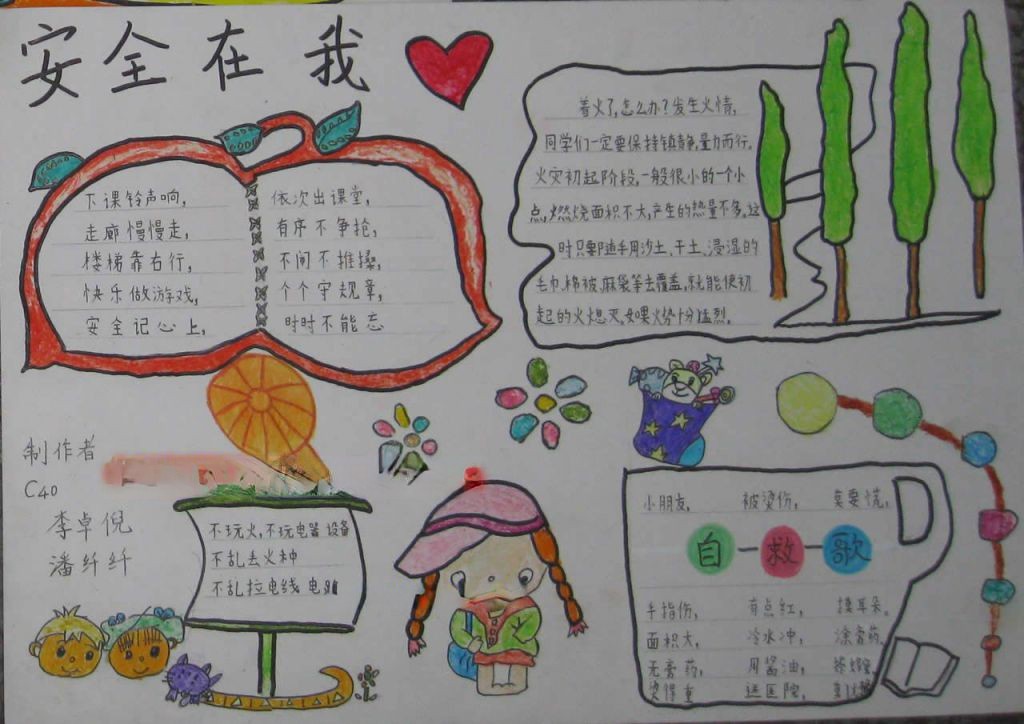 安全在我
下课铃声响，
走廊慢慢走，
楼梯靠右行，
快乐做游戏，
安全记心上，
依次出课堂，
有序不争抢，
不间不推搡，
个个守规章，
时时不能忘
着火了，怎么办？发生火情，
同学们一定要保持镇静，量力而行。
火灾初起阶段，一般很小的一个小
点，燃烧面积不大，产生的热量不多。这
时只要随手用沙土、干土、浸湿的
毛巾、棉被、麻袋等去覆盖，就能使初
起的火熄灭，如果火势十分猛烈，
制作者
C40
李卓倪
潘纤纤
不玩火，不玩电器设备
不乱丢火种
不乱拉电线
小朋友， 被烫伤， 莫要慌，
自－救－歌
手指伤， 有点红， 摸耳朵。
面积大， 冷水冲， 涂膏药，
无膏药， 用酱油，
烫得重 送医院，